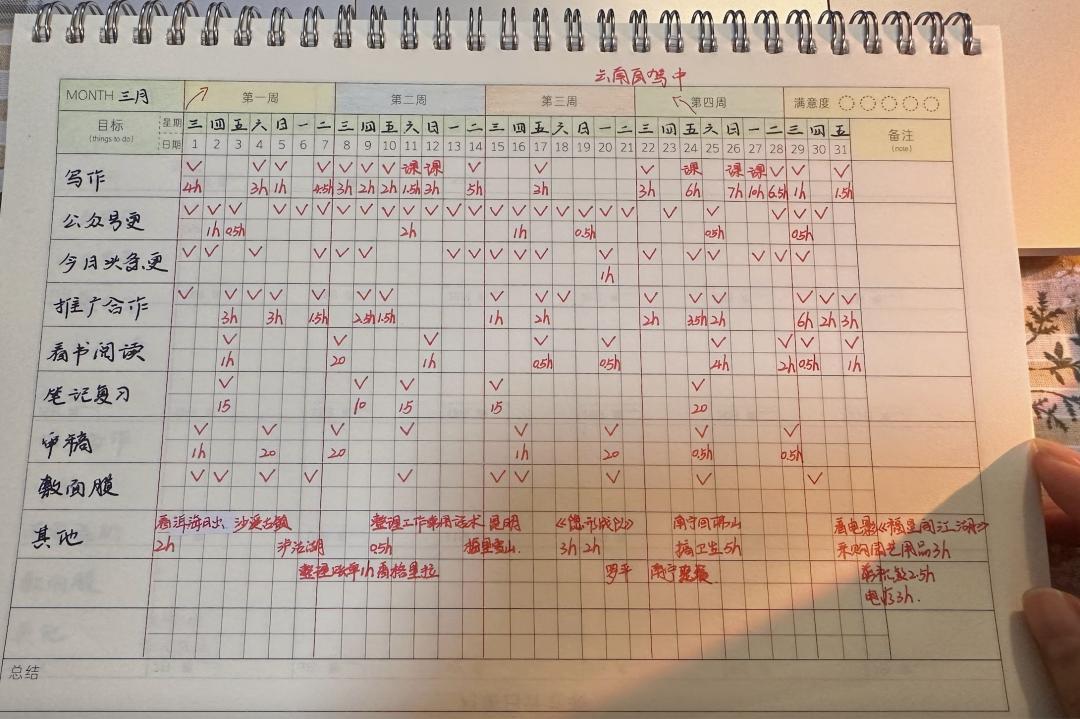 云南自驾中
MONTH 三月 第一周 第二周 第三周 第四周 满意度
目标 (things to do) 星期 三 四 五 六 日 一 二 三 四 五 六 日 一 二 三 四 五 六 日 一 二 三 四 五 六 日 一 二 三 四 五 备注 (note)
日期 1 2 3 4 5 6 7 8 9 10 11 12 13 14 15 16 17 18 19 20 21 22 23 24 25 26 27 28 29 30 31
写作 ✓ ✓ ✓ ✓ ✓ ✓ ✓ 课 课 ✓ ✓ ✓ 课 课 课 ✓ ✓ ✓
4h 3h 1h 4.5h 3h 2h 2h 1.5h 3h 5h 2h 3h 6h 7h 10h 6.5h 1h 1.5h
公众号更 ✓ ✓ ✓ ✓ ✓ ✓ ✓ ✓ ✓ ✓ ✓ ✓ ✓ ✓ ✓ ✓ ✓ ✓ ✓ ✓ ✓ ✓ ✓ ✓ ✓
1h 0.5h 2h 1h 0.5h 0.5h 0.5h
今日头条更 ✓ ✓ ✓ ✓ ✓ ✓ ✓ ✓ ✓ ✓ ✓ ✓ ✓ ✓ ✓ ✓
1h
推广合作 ✓ ✓ ✓ ✓ ✓ ✓ ✓ ✓ ✓ ✓ ✓ ✓ ✓ ✓ ✓ ✓
3h 3h 1.5h 2.5h 1.5h 1h 2h 2h 3.5h 2h 6h 2h 3h
看书阅读 ✓ ✓ ✓ ✓ ✓ ✓ ✓ ✓ ✓
1h 20 1h 0.5h 0.5h 4h 2h 0.5h 1h
笔记复习 ✓ ✓ ✓ ✓ ✓
15 10 15 15 20
审稿 ✓ ✓ ✓ ✓ ✓ ✓ ✓ ✓
1h 20 20 1h 20 0.5h 0.5h
敷面膜 ✓ ✓ ✓ ✓ ✓ ✓ ✓ ✓ ✓ ✓
其他 看洱海日出、沙溪古镇 整理工作常用话术 昆明 南宁回佛山 看电影《
2h 泸沽湖 0.5h 3h 2h 搞卫生5h 采购园艺用品3h
香格里拉 罗平 南宁
2.5h
3h.
总结